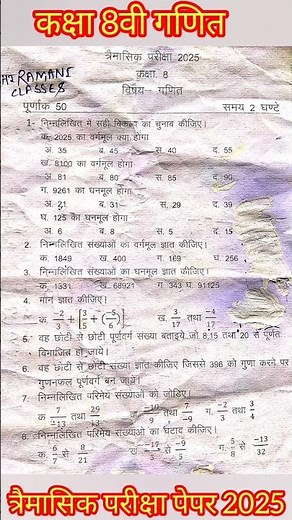 कक्षा 8वी गणित
त्रैमासिक परीक्षा 2025
HJ RAMANI
CLASSES
कक्षा 8
विषय- गणित
पूर्णांक 50 समय 2 घण्टे
1- निम्नलिखित में सही विकल्प का चुनाव कीजिए।
क. 2025 का वर्गमूल क्या होगा
अ. 35 ब. 45 स. 40 द. 55
ख. 8100 का वर्गमूल होगा
अ. 81 ब. 80 स. 85 द. 90
ग. 9261 का घनमूल होगा
अ. 21 ब. 31 स. 29 द. 39
घ. 125 का घनमूल होगा
अ. 6 ब. 8 स. 5 द. 15
2. निम्नलिखित संख्याओं का वर्गमूल ज्ञात कीजिए।
क. 1849 ख. 400 ग. 169 घ. 256
3. निम्नलिखित संख्याओं का घनमूल ज्ञात कीजिए।
क. 1331 ख. 68921 ग. 343 घ. 91125
4. मान ज्ञात कीजिए।
क. -2/3 + [3/5 + (-5/6)] ख. 3/17 तथा -4/17
5. वह छोटी से छोटी पूर्णवर्ग संख्या बताइये जो 8,15 तथा 20 से पूर्णतः
विभाजित हो जाये।
6. वह छोटी से छोटी संख्या ज्ञात कीजिए जिससे 396 को गुणा करने पर
गुणनफल पूर्णवर्ग बन जाये।
7. निम्नलिखित परिमेय संख्याओं को जोडिए।
क. 7/-13 तथा 29/13 ख. /9 तथा 7/-9 ग. -2/3 तथा 3/4
8. निम्नलिखित परिमेय संख्याओं का घटाव कीजिए।
क. 6/7 से 8/21 ख. से -9/ ग. 5/8 से -13/32
त्रैमासिक परीक्षा पेपर 2025